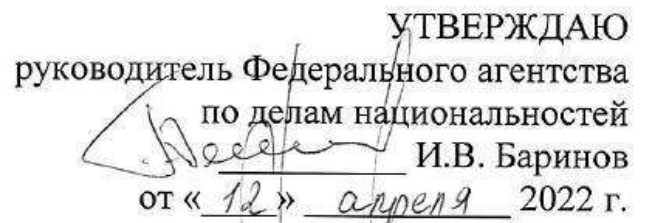 УТВЕРЖДАЮ
руководитель Федерального агентства
по делам национальностей
И.В. Баринов
от «12» апреля 2022 г.